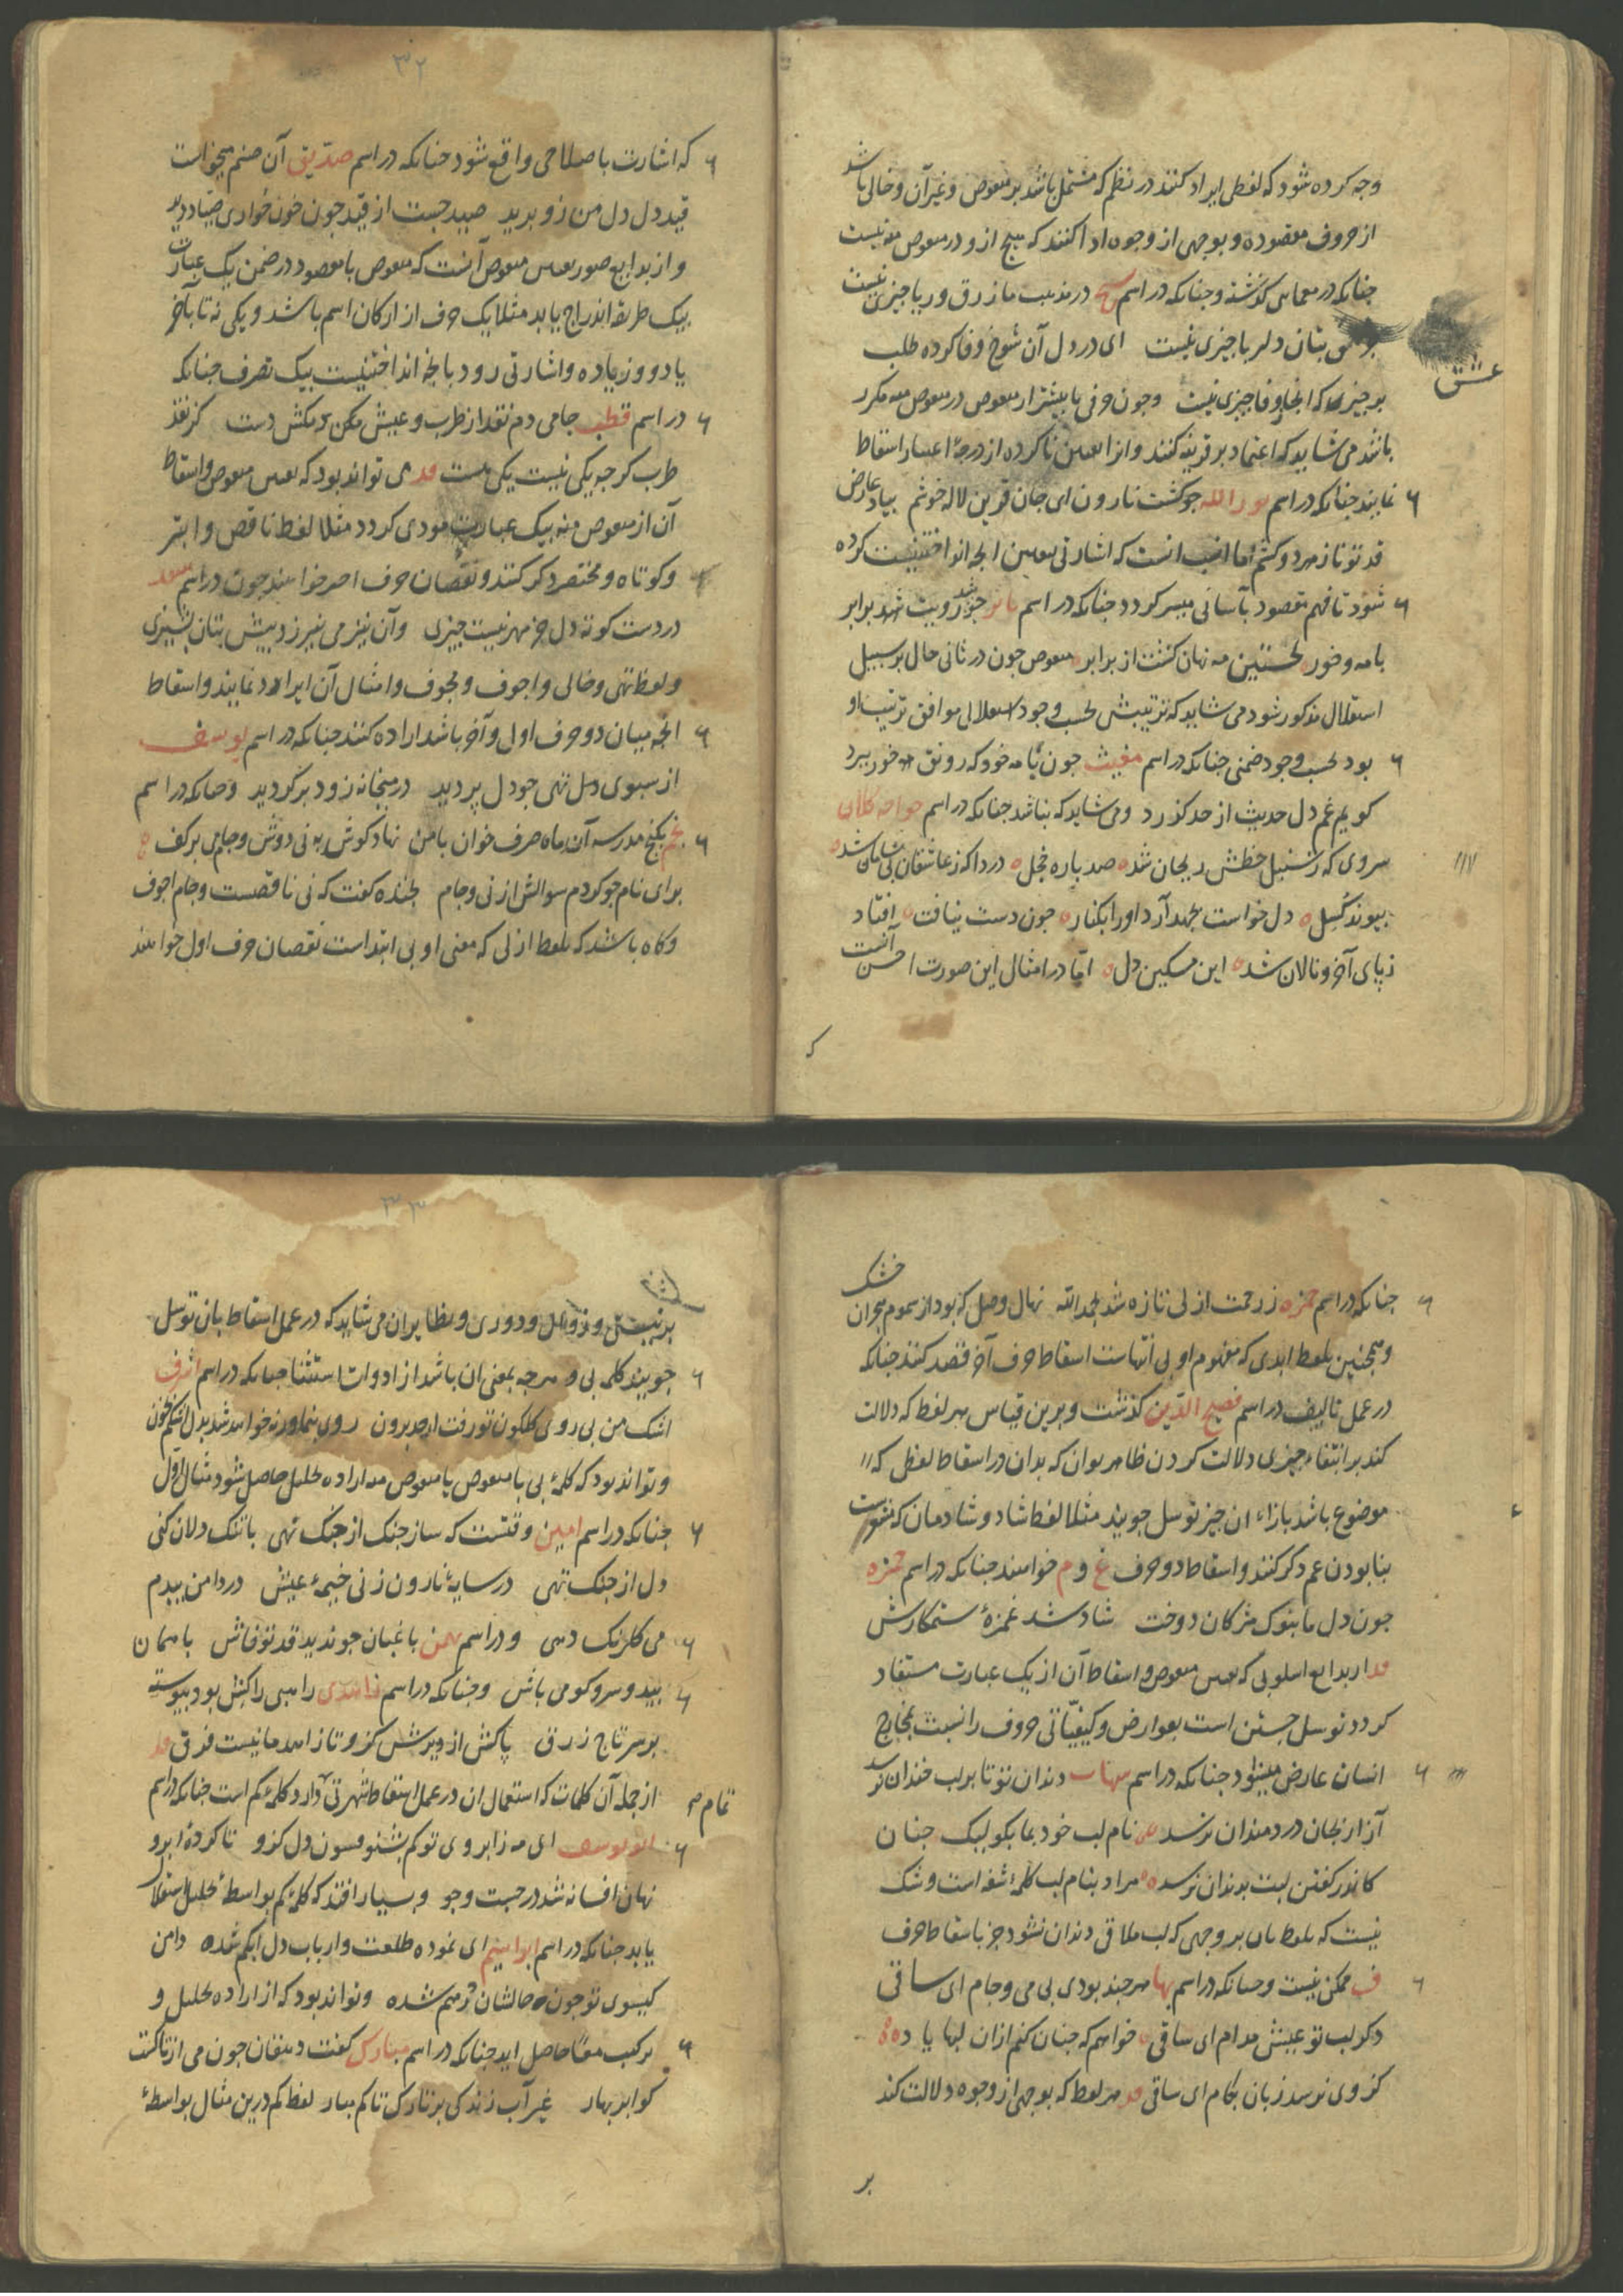 وجه کرده شود که لفظی ایراد کنند در نظم که مشتمل باشد بر منقوص و غیر آن و خالی باشد
از حروف مقصوده و بوجهی از وجوه ادا کنند که هیچ ازو در منقوص منه نیست
چنانکه در معمای گذشته و چنانکه در اسم در مذهب ما زرق و ریا چیزی نیست
بتان دلربا چیزی نیست ای در دل آن شوخ وفا کرده طلب
عشق
بر چیزی که انجا وفا چیزی نیست و چون حرفی یا بیشتر از منقوص در منقوص منه مکرر
باشد می شاید که اعتماد بر قرینه کنند و انرا تعین ناکرده از درجهٔ اعتبار اسقاط
نمایند چنانکه در اسم نور الله چو کشت نارون ای جان قرین لاله خوشم بیاد عارض
قد تو نازمرد و کشم اما انسب انست که اشارتی بتعین انچه انداختنیست کرده
شود تا فهم مقصود بآسانی میسر کردد چنانکه در اسم چو شد رویت برابر
با مه و خور نخستین مه نهان کشت از برابر منقوص چون در ثانی حال بر سبیل
استقلال مذکور شود می شاید که ترتیبش بحسب وجود استقلالی موافق ترتیب او
بود بحسب وجود ضمنی چنانکه در اسم مغیث چون با مه خود که رونق خور ببرد
کویم غم دل حدیث از حد کذرد و می شاید که نباشد چنانکه در اسم خواجه کلان
سروی که ز سنبل خطش ریحان شد صد پاره خجل دردا که ز عاشقان بی سامان شد
پیوند کسل دل خواست بجهد آرد او را بکنار چون دست نیافت افتاد
ز پای آخر و نالان شد این مسکین دل اما در امثال این صورت احسن آنست
که
۳۲
که اشارت باصطلاحی واقع شود چنانکه در اسم صدیق آن صنم میخواست
قید دل دل من زو برید صید جست از قید چون خون خواری صیاد دید
و از بدایع صور تعین منقوص آنست که منقوص با مقصود در ضمن یک عبارت
بیک طریقه اندراج یابد مثلا یک حرف از ارکان اسم باشد و یکی نه تا بآخر
یا دو و زیاده و اشارتی رود بانچه انداختنیست بیک تصرف چنانکه
در اسم قطب جامی دم نقد از طرب و عیش مکن مکش دست کز نقد
طرب کر چه یکی نیست یکی هست می تواند بود که تعین منقوص و اسقاط
آن از منقوص منه بیک عبارت مودی کردد مثلا لفظ ناقص و ابتر
و کوتاه و مختصر ذکر کنند و نقصان حرف اخر خواهند چون در اسم سعد
در دست کوته دل جز مهر نیست چیزی وآن نیز می نیرزد پیش بتان پشیزی
و لفظ تهی و خالی و اجوف و مجوف و امثال آن ایراد نمایند و اسقاط
انچه میان دو حرف اول و آخر باشد اراده کنند چنانکه در اسم یوسف
از سبوی دل تهی چو دل پر دید در میخانه زود بر کردید و چنانکه در اسم
نجم بکنج مدرسه آن ماه صرف خوان با من نهاد کوش به نی دوش و جام می بر کف
برای نام چو کردم سوالش از نی و جام بخنده کفت که نی ناقصست و جام اجوف
و کاه باشد که بلفظ ازلی که معنی او بی ابتداست نقصان حرف اول خواهند
چنانکه در اسم حمزه ز رحمت ازلی تازه شد بحمدالله نهال وصل که بود از سموم هجران خشک
و همچنین بلفظ ابدی که مفهوم او بی انتهاست اسقاط حرف آخر قصد کنند چنانکه
در عمل تالیف در اسم فصیح الدین کذشت و برین قیاس هر لفظ که دلالت
کند بر انتفاء چیزی دلالت کردن ظاهر توان که بدان در اسقاط لفظی که
موضوع باشد بازاء ان چیز توسل جویند مثلا لفظ شاد و شادمان که
بنابودن غم ذکر کنند و اسقاط دو حرف غ و م خواهند چنانکه در اسم حمزه
چون دل ما بنوک مژکان دوخت شاد شد غمزهٔ ستمکارش
از بدایع اسلوبی که تعین منقوص و اسقاط آن از یک عبارت مستفاد
کردد توسل جستن است بعوارض و کیفیاتی حروف را نسبت بمخارج
انسان عارض میشود چنانکه در اسم دندان تو تا بر لب خندان نرسد
آزار بجان دردمندان نرسد نام لب خود بما بکو لیک چنان
کاندر کفتن لبت بدندان نرسد مراد بنام لب کلمهٔ شفه است و شک
نیست که تلفظ بان بر وجهی که لب ملاقی دندان نشود جز باسقاط حرف
ف ممکن نیست و چنانکه در اسم بها هر چند بودی بی می و جام ای ساقی
ذکر لب تو عیش مدام ای ساقی خواهم که چنان کنم ازان لبها یاد
کز وی نرسد زبان بکام ای ساقی هر لفظ که بوجهی از وجوه دلالت کند
بر
۳۳
بر نیستی و زوال و دوری و نظایر ان می شاید که در عمل اسقاط بان توسل
جویند کلمه بی و هر چه بمعنی ان باشد از ادوات استثنا چنانکه در اسم اشرف
اشک من بی روی کلکون تو رفت از حد برون روی بنما ورنه خواهد شد بدل اشکم بخون
و تواند بود که کلمهٔ بی با منقوص یا منقوص منه اراده تحلیل حاصل شود مثال اول
چنانکه در اسم امین وقتست که ساز چنک از چنک نهی با تنک دلان کنی
دل از جنک تهی در سایهٔ نارون زنی خیمهٔ عیش در دامن بید
می کلرنک دهی و در اسم بهمن باغبان چو ندید قد تو فاش با همان
بید و سرو کو می باش و چنانکه در اسم راهبی را کش بود پیوسته
بر سر تاج زرق پاکش از ویرش کز و تا زاهد ما نیست فرق
از جمله آن کلمات که استعمال ان در عمل اسقاط شهرتی دارد کلمهٔ کم است چنانکه در اسم
تمام
ای مه ز ابروی تو کم بشنو فسون دل کزو نا کرده ابرو
نهان افسانه شد در جست وجو و بسیار افتد که کلمهٔ کم بواسطهٔ تحلیل استقلال
یابد چنانکه در اسم ابراهیم ای نموده طلعت و ارباب دل ابکم شده دامن
کیسوی تو چون حالشان درهم شده و تواند بود که از اراده تحلیل و
ترکیب معا حاصل اید چنانکه در اسم مبارک کفت دهقان چون می از تاکت
کو ابر بهار غیر آب زندکی بر تارک تاکم مبار لفظ کم درین مثال بواسطهٔ